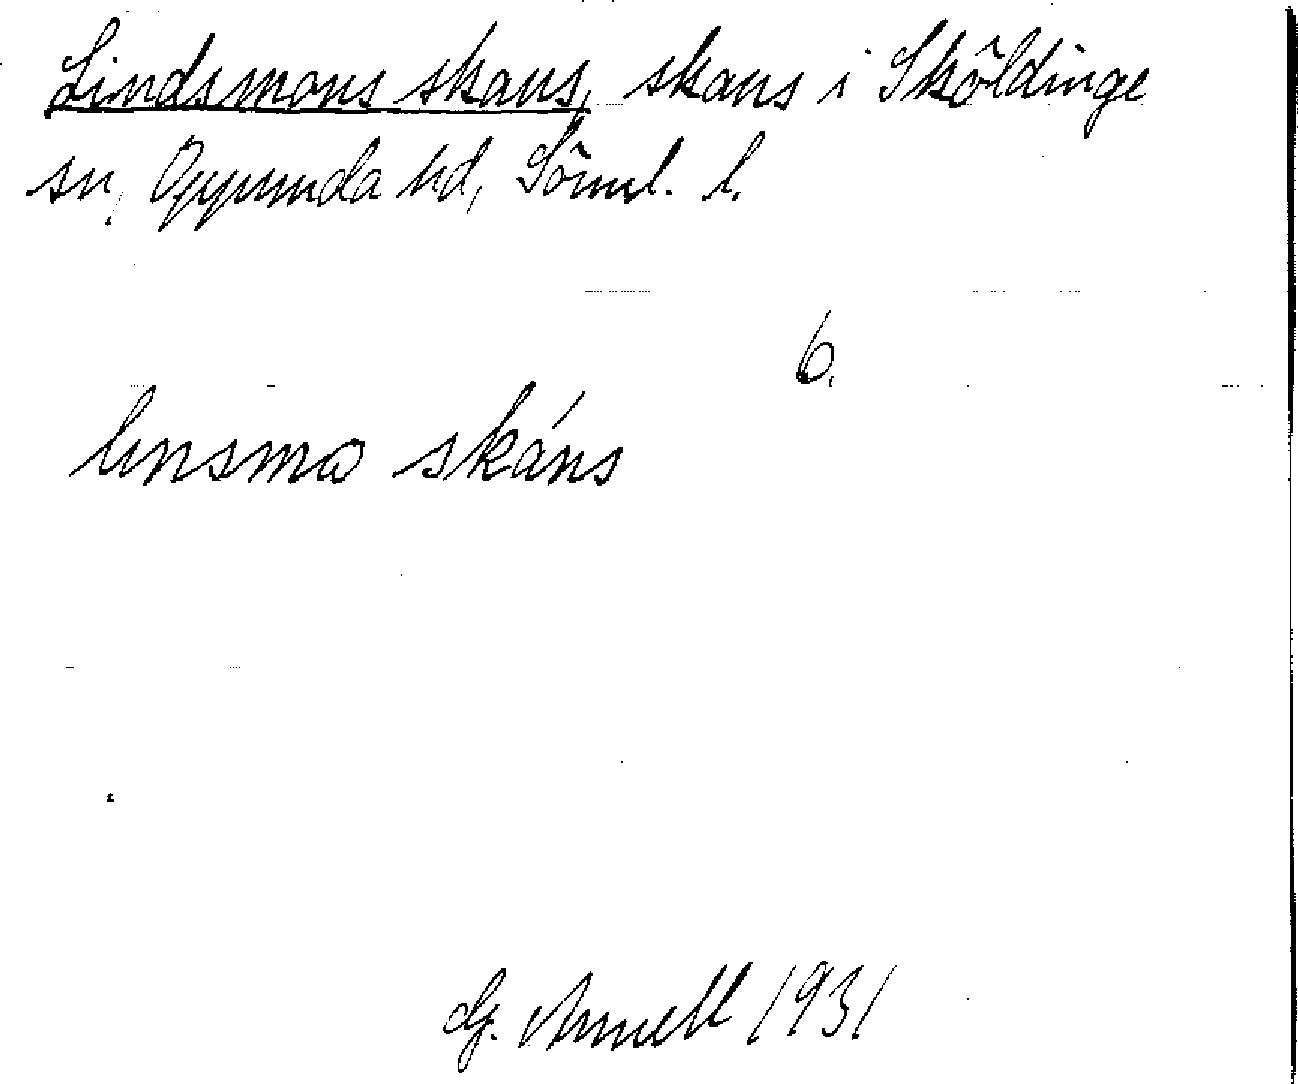 Lindsmons skans, skans i Sköldinge
sn, Oppunda hd, Söml. l.
6.
linsmo skáns
G. Arnell 1931